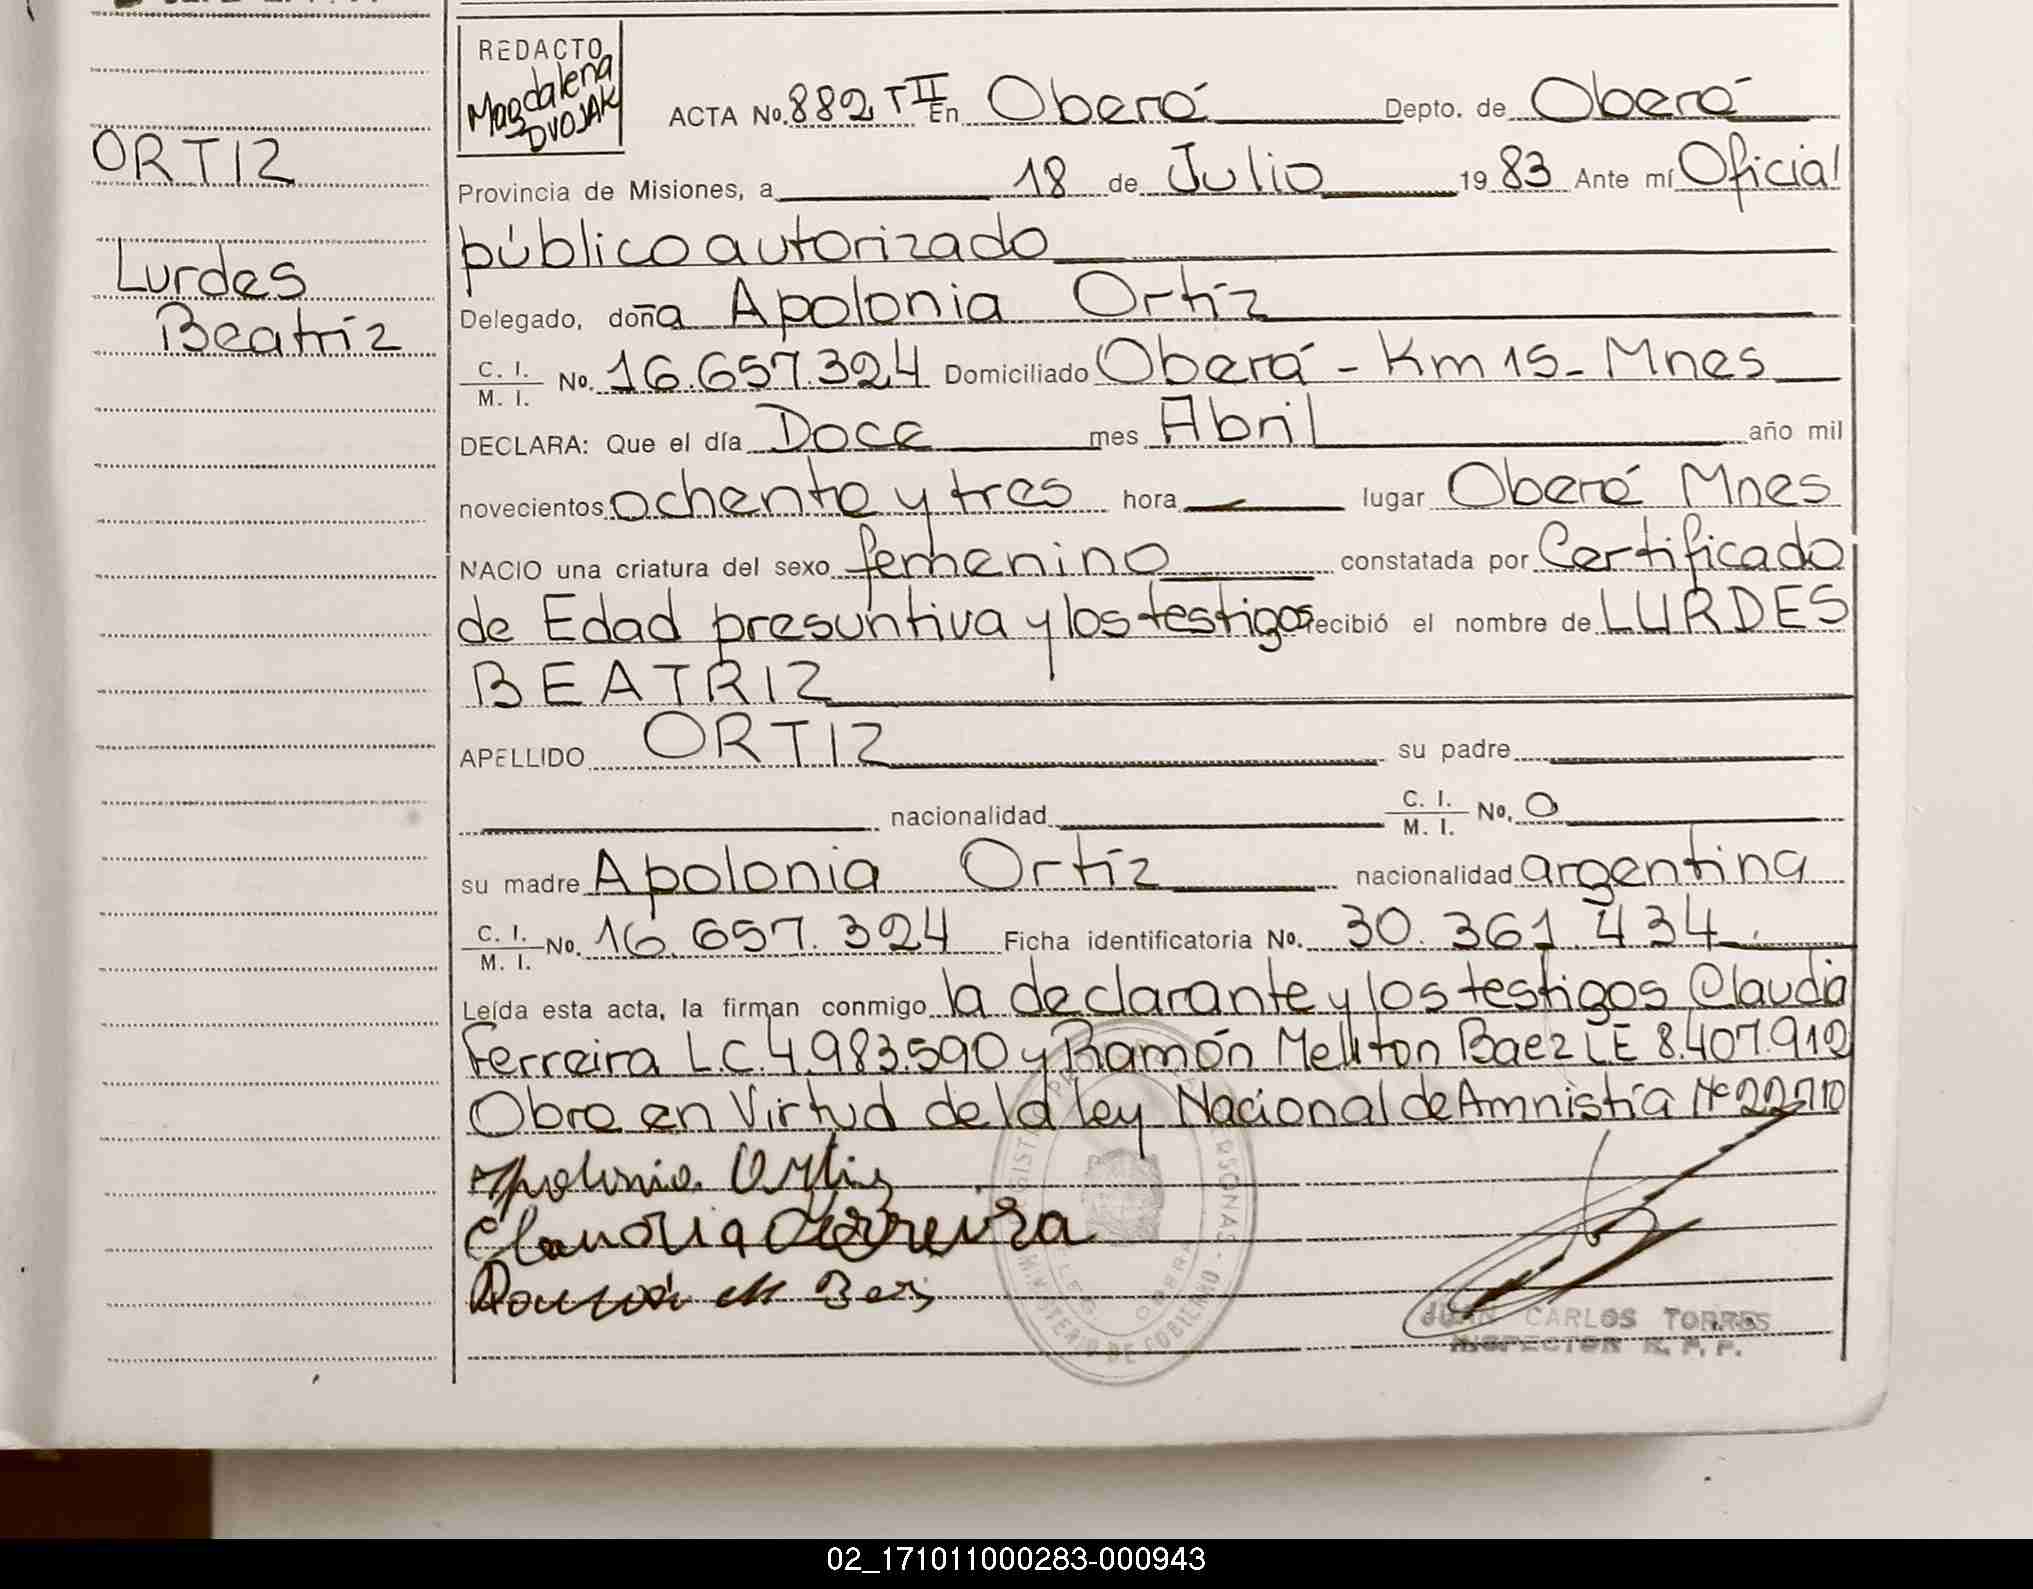 ORTIZ
Lurdes
Beatriz
REDACTO
Magdalena
DVOJAK
ACTA No. 882 T II En Oberá Depto. de Oberá
Provincia de Misiones, a 18 de Julio 1983 Ante mí Oficial
público autorizado
Delegado, doña Apolonia Ortíz
C. I. / M. I. No. 16.657.324 Domiciliado Oberá - Km 15 - Mnes
DECLARA: Que el día Doce mes Abril año mil
novecientos ochenta y tres hora lugar Oberá Mnes
NACIO una criatura del sexo femenino constatada por Certificado
de Edad presuntiva y los testigos recibió el nombre de LURDES
BEATRIZ
APELLIDO ORTIZ su padre
nacionalidad C. I. / M. I. No. 0
su madre Apolonia Ortíz nacionalidad argentina
C. I. / M. I. No. 16.657.324 Ficha identificatoria No. 30.361.434
Leída esta acta, la firman conmigo la declarante y los testigos Claudia
Ferreira L.C. 4.983.590 y Ramón Meliton Baez LE 8.407.912
Obra en Virtud de la Ley Nacional de Amnistía Nº 22.710
Apolonia Ortiz
Claudia Ferreira
Ramón M Baez
MINISTERIO DE GOBIERNO
JUAN CARLOS TORRES
INSPECTOR R. P. P.
02_171011000283-000943